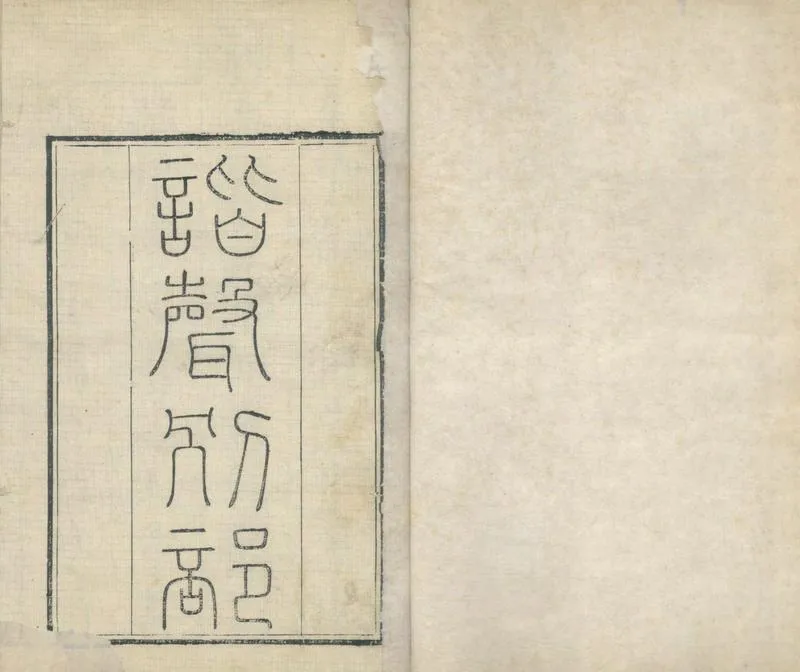 諧聲別部